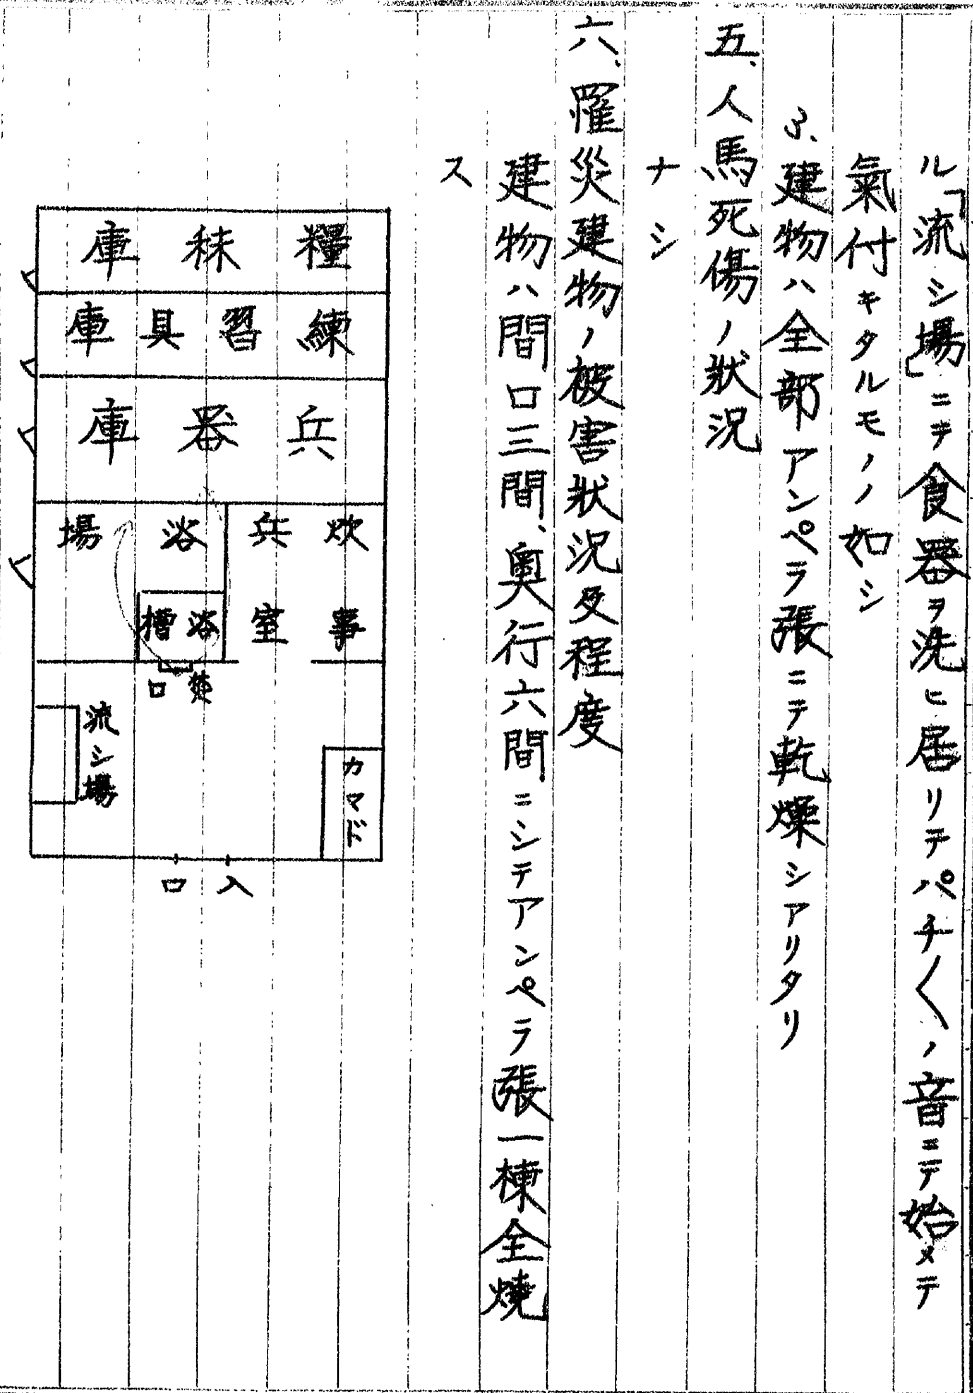 ル「流シ場」ニテ食器ヲ洗ヒ居リテパチ〱ノ音ニテ始メテ
氣付キタルモノノ如シ
3、建物ハ全部アンペラ張ニテ乾燥シアリタリ
五、人馬死傷ノ狀況
ナシ
六、罹災建物ノ被害狀況及程度
建物ハ間口三間、奥行六間ニシテアンペラ張一棟全燒
ス
糧秣庫
練習具庫
兵器庫
炊事
兵室
浴場
浴槽
焚口
流シ場
カマド
入口